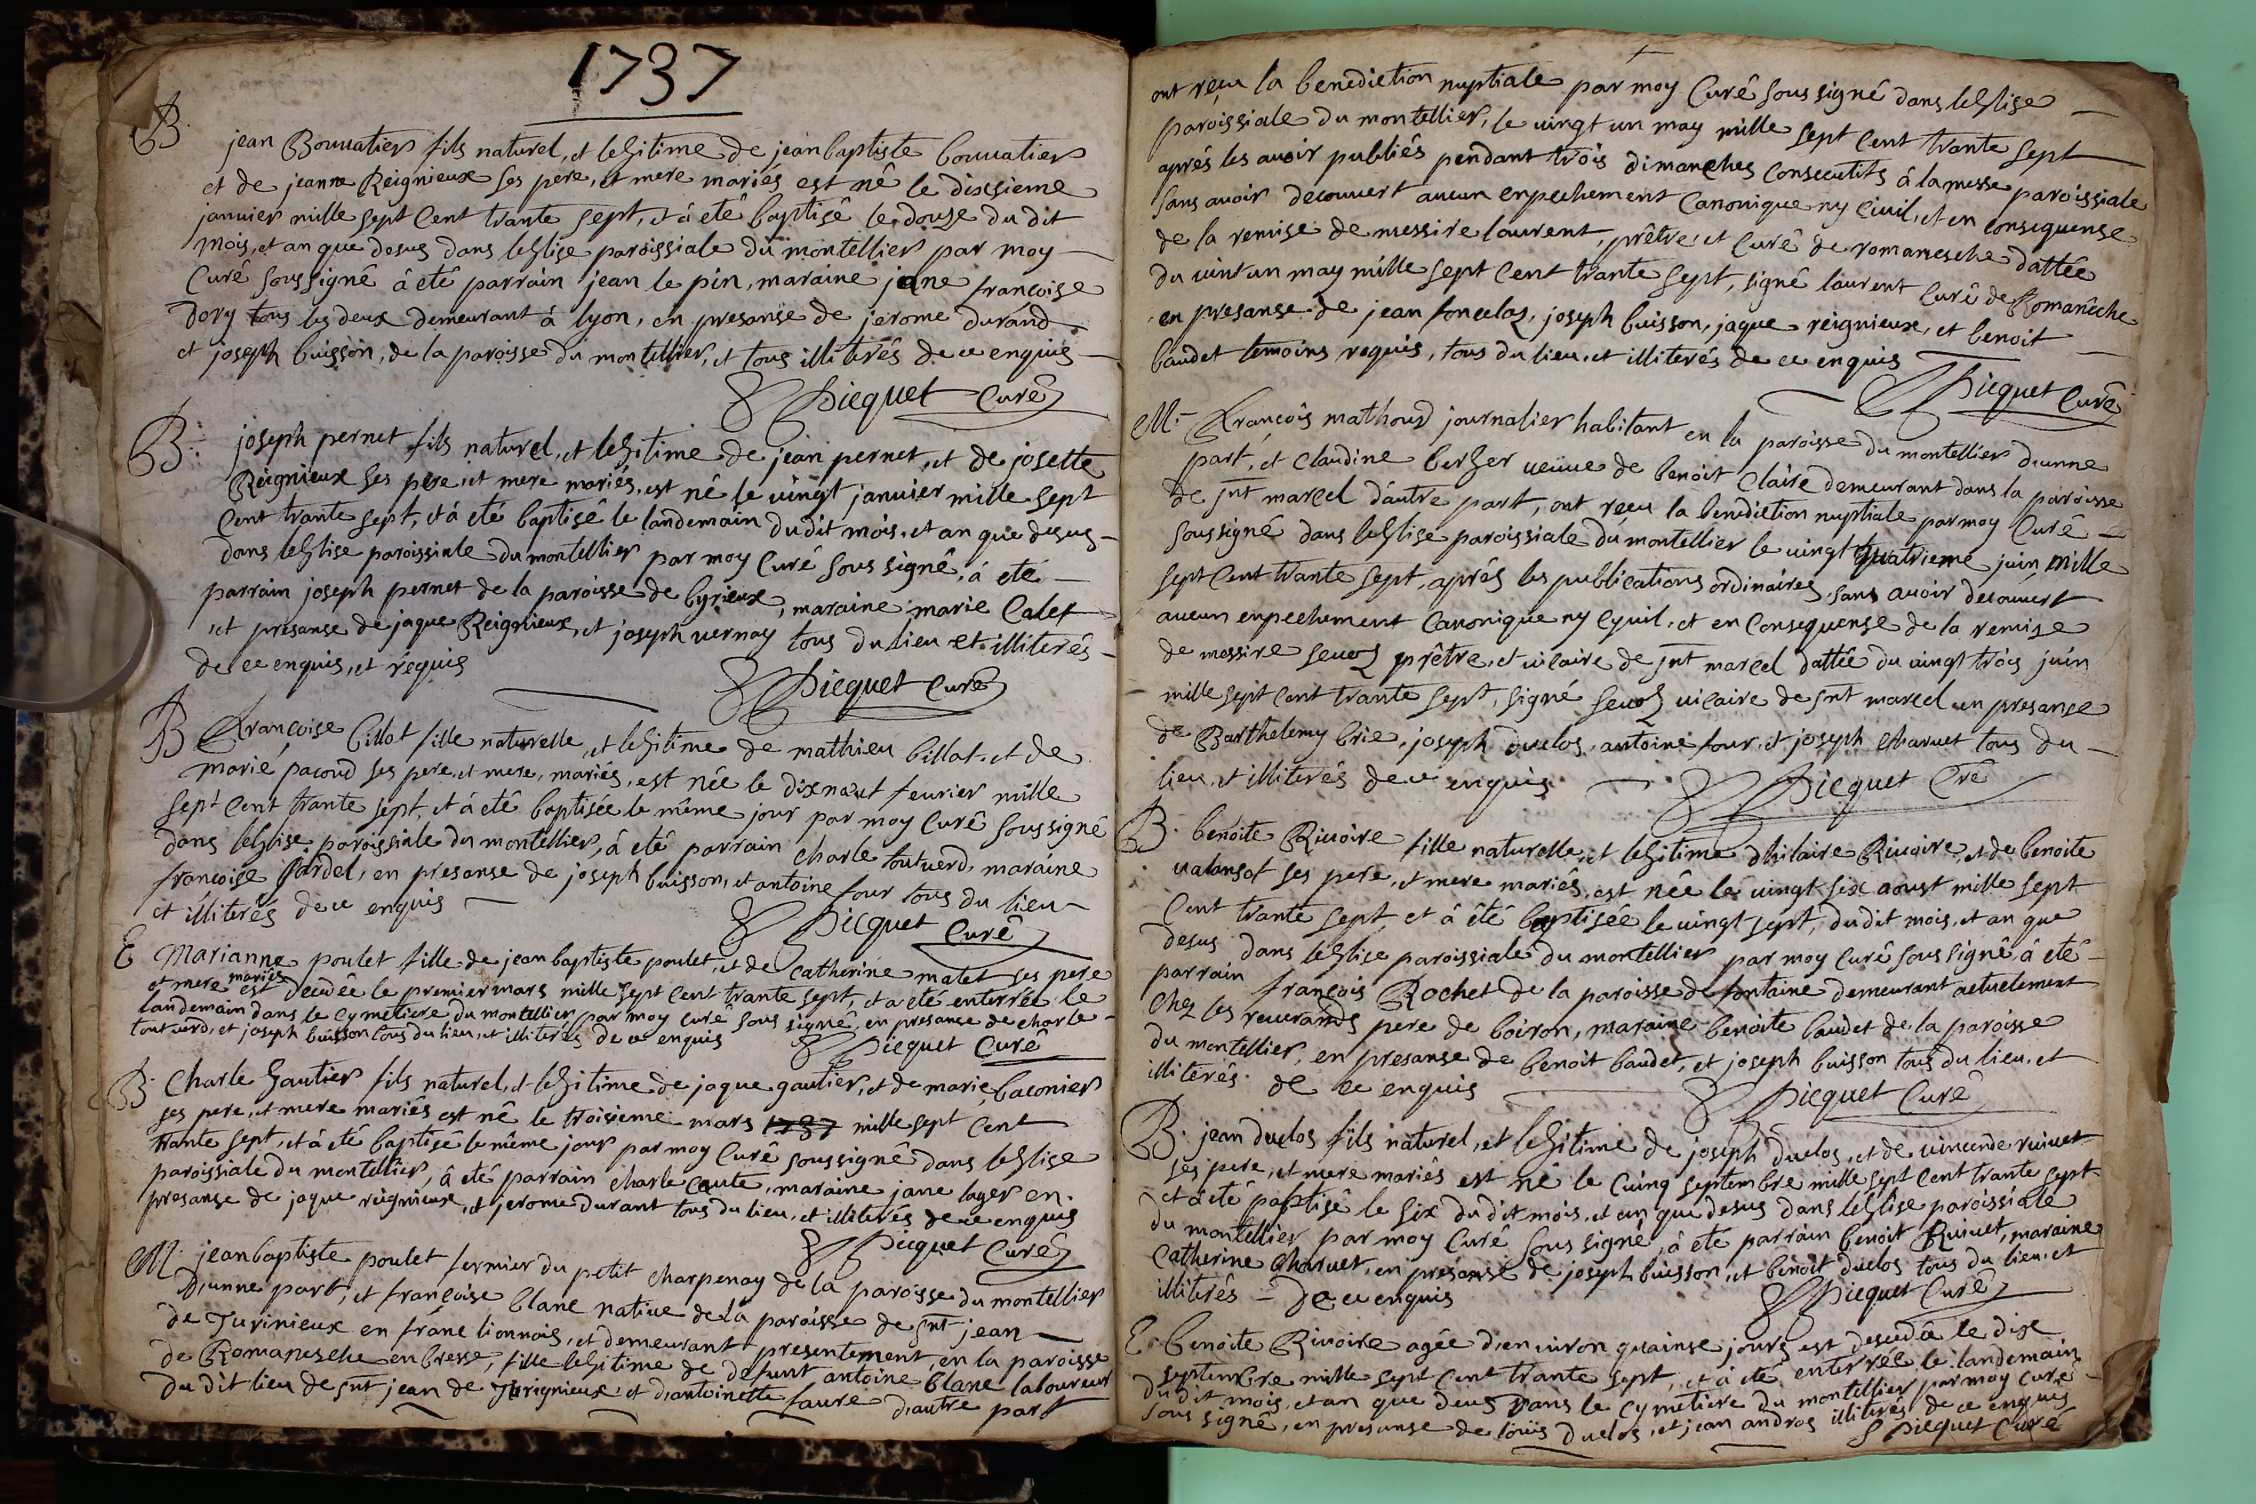 1737
B. jean Bouuatier fils naturel, et leḡitime de jean baptiste bouuatier
et de jeanne Reignieux ses pere, et mere mariés est nê le dixsieme
januier mille sept Cent trante sept, et â etê baptisê le douze du dit
mois, et an que desus dans leglise paroissiale du montellier par moy
Curê soussignê â etê parrain jean le pin, maraine jane françoise
Dory tous les deux demeurant â lyon, en presanse de jerome durand
et joseph buisson, de la paroisse du montellier, et tous illiterês de ce enquis
Picquet Curê
B. joseph pernet fils naturel, et legitime de jean pernet, et de josette
Reignieux ses pere, et mere mariés, est nê le uingt januier mille sept
Cent trante sept, et â etê baptisê le landemain du dit mois, et an que desus
dans leglise paroissiale du montellier par moy Curê sous signê, â etê
parrain joseph pernet de la paroisse de byrieux, maraine marie Calet
et presanse de jaque Reignieux, et joseph uernay tous du lieu et illiterês
de ce enquis, et requis
Picquet Curê
B françoise billot fille naturelle, et legitime de mathieu billat, et de
marie pacoud ses pere, et mere, mariés, est née le dixnaut feurier mille
sept Cent trante sept, et â etê baptisêe le même jour par moy Curê soussignê
dans leglise paroissiale du montellier, â etê parrain charle toutuerd, maraine
françoise Jardel, en presanse de joseph buisson, et antoine four tous du lieu
et illiterés de ce enquis
Picquet Curê
E Marianne poulet fille de jean baptiste poulet, et de catherine matet ses pere
et mere mariés est decedêe le premier mars mille sept Cent trante sept, et a etê enterrée le
landemain dans le cymetiere du montellier par moy curê sous signê, en presanse de charle
toutuerd, et joseph buisson tous du lieu, et illiterés de ce enquis
Picquet Curé
B. Charle gautier fils naturel, et legitime de jaque gautier, et de marie baconier
ses pere, et mere mariés est nê le troisieme mars 1737 mille sept Cent
trante sept, et â etê baptisê le même jour par moy Curê soussignê dans leglise
paroissiale du montellier, â etê parrain charle Coute, maraine jane lager en
presanse de jaque reignieux, et jerome durant tous du lieu, et illiterés de ce enquis
Picquet Curê
M. jean baptiste poulet fermier du petit charpenay de la paroisse du montellier
d'unne part, et françoise blanc natiue de la paroisse de snt jean
de Turinieux en franc lionnois, et demeurant presentement, en la paroisse
de Romanesche en bresse, fille legitime de defunt antoine blanc laboureur
du dit lieu de snt jean de Turignieux, et d'antoinette faure d'autre part
ont reçu la benediction nuptiale par moy Curê sous signê dans leglise
paroissiale du montellier, le uingt un may mille sept Cent trante sept
aprés les auoir publiês pendant trois dimanches Consecutifs â la messe paroissiale
sans auoir decouuert aucun enpechement Canonique ny Ciuil, et en consequense
de la remise de messire laurent, prêtre et Curê de romanesche dattêe
du uint un may mille sept Cent trante sept, signê laurent curê de Romanêche
en presanse de jean foncelas, joseph buisson, jaque reignieux, et benoit
baudet temoins requis, tous du lieu, et illiterés de ce enquis
Picquet Curê
M. françois mathoud journalier habitant en la paroisse du montellier d'unne
part, et Claudine berger ueuue de benoit Claire demeurant dans la paroisse
de snt marcel d'autre part, ont reçu la benediction nuptiale par moy Curê
soussigné dans leglise paroissiale du montellier le uingt quatrieme juin mille
sept Cent trante sept, aprés les publications ordinaires, sans auoir descouuert
aucun enpechement Canonique ny Cyuil, et en Consequense de la remise
de messire seuoz prêtre, et uicaire de snt marcel dattêe du uingt trois juin
mille sept Cent trante sept, signé seuoz uicaire de snt marcel en presanse
de Barthelemy brie, joseph duclos, antoine four, et joseph charuet tous du
lieu, et illiterés de ce enquis
Picquet Crê
B. benoite Riuoire fille naturelle, et legitime d'hilaire Riuoire, et de benoite
ualansot ses pere, et mere mariés, est née le uingt six aoust mille sept
Cent trante sept et â êtê baptisée le vingt sept, du dit mois, et an que
desus dans leglise paroissiale du montellier par moy curê sous signê â etê
parrain françois Rochet de la paroisse de fontaine demeurant actuelement
Chez les reuerands pere de boiron, maraine benoite baudet de la paroisse
du montellier, en presanse de benoit baudet, et joseph buisson tous du lieu, et
illiterés de ce enquis
Picquet Curê
B. jean duclos fils naturel, et legitime de joseph duclos, et de uincende riuuet
ses pere, et mere mariês est nê le Cuinq septembre mille sept Cent trante sept
et â etê baptisê le six du dit mois, et an que desus dans leglise paroissiale
du montellier par moy Curê sous signê, â ete parrain benoit Riuuet, maraine
Catherine Charuet, en presanse de joseph buisson, et benoit duclos tous du lieu, et
illiterés de ce enquis
Picquet Curê
E. benoite Riuoire agée d'enuiron quainse jours est descedêe le dix
septembre mille sept Cent trante sept, et â etê enterrée le landemain
du dit mois, et an que desus dans le cymetiere du montellier par moy Curé
sous signê, en presanse de louis duclos, et jean andros illiterés de ce enquis
Picquet Curé